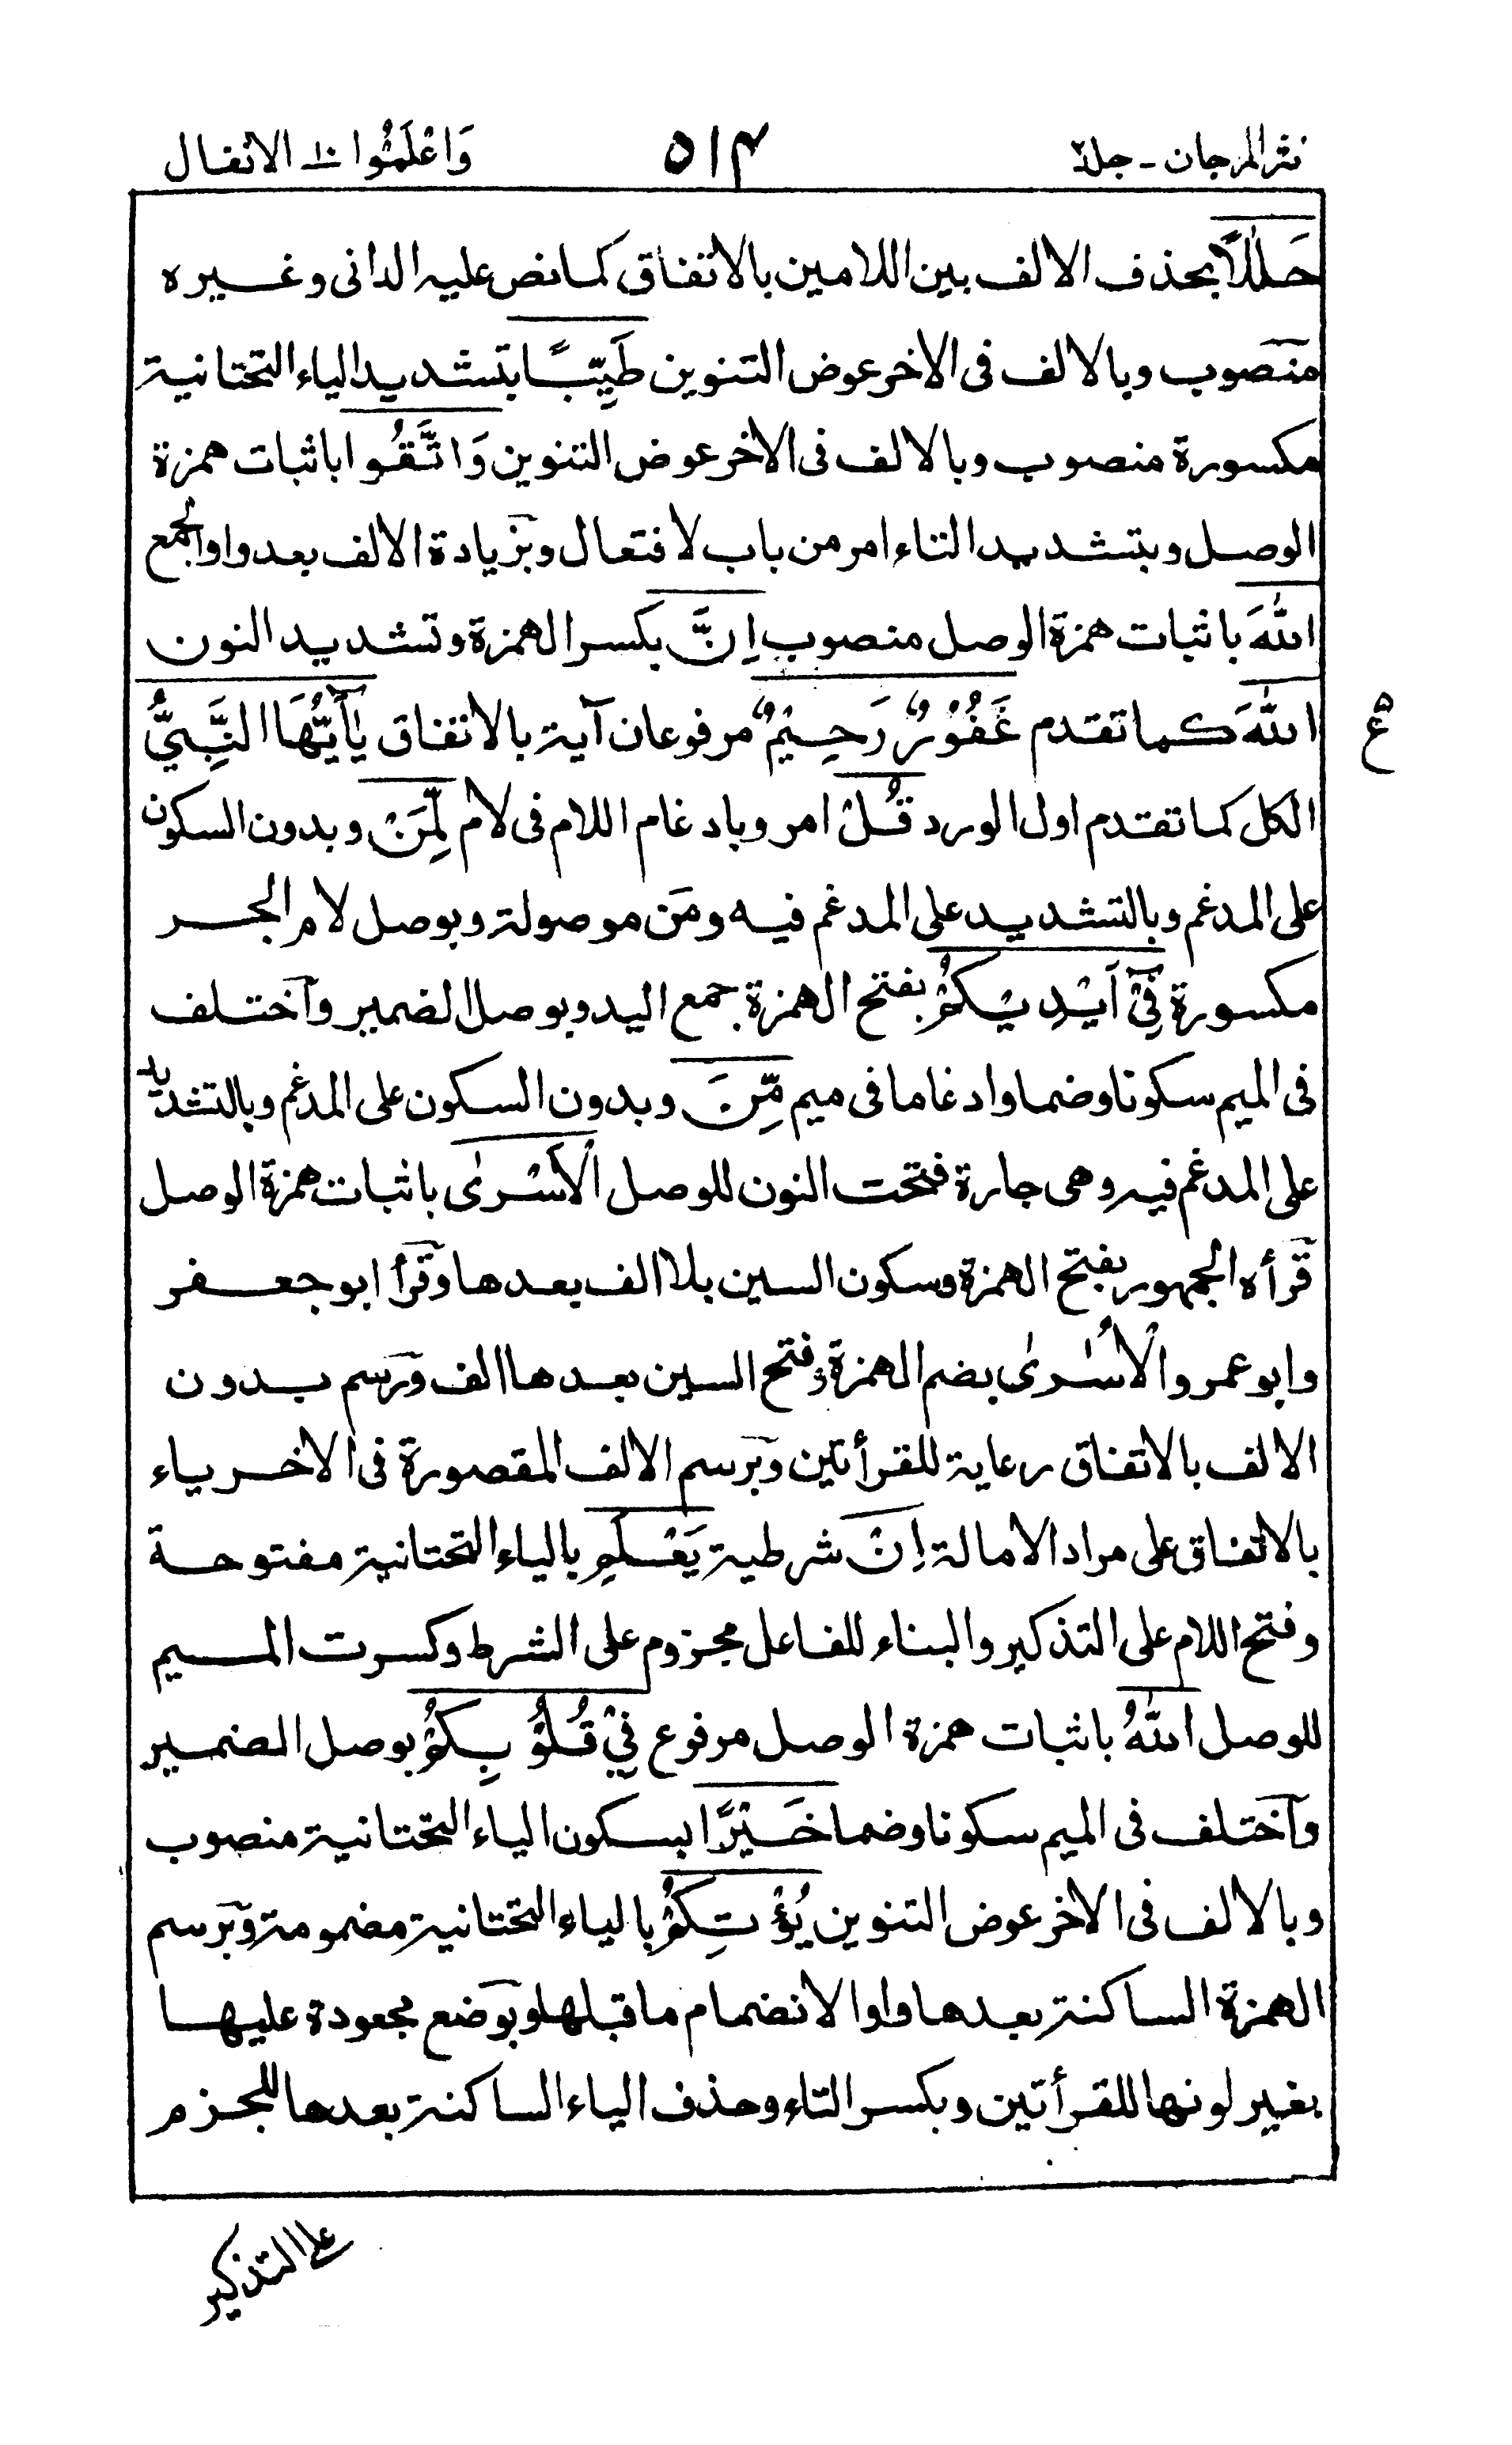 نثر المرجان - جلد٢ ۵۱۴ وَاعْلَمُوْا ۱۰ الانفال
حَلٰلًا بحذف الالف بين اللامين بالاتفاق كما نص عليه الدانى وغيره
منصوب وبالالف فى الاخر عوض التنوين طَيِّبًا بتشديد الياء التحتانية
مكسورة منصوب وبالالف فى الاخر عوض التنوين وَاتَّقُوا باثبات همزة
الوصل وبتشديد التاء امر من باب لافتعال وبزيادة الالف بعد واو الجمع
اللّٰهَ باثبات همزة الوصل منصوب اِنَّ بكسر الهمزة وتشديد النون
اللّٰهَ كما تقدم غَفُوْرٌ رَحِيْمٌ مرفوعان آية بالاتفاق يٰٓاَيُّهَا النَّبِيُّ
ع
الكل كما تقدم اول الورد قُلْ امر وبادغام اللام فى لام لِّمَنْ وبدون السكون
على المدغم وبالتشديد على المدغم فيه ومَن موصولة وبوصل لام الجر
مكسورة فِيْٓ اَيْدِيْكُمْ بفتح الهمزة جمع اليد وبوصل الضمير وآختلف
فى الميم سكونا وضما وادغاما فى ميم مِّنَ وبدون السكون على المدغم وبالتشديد
على المدغم فيه وهى جارة فتحت النون للوصل الْاَسْرٰى باثبات همزة الوصل
قرأه الجمهور بفتح الهمزة وسكون السين بلا الف بعدها وقرأ ابو جعفر
وابو عمرو الْاُسٰرٰى بضم الهمزة وفتح السين بعدها الف ورسم بدون
الالف بالاتفاق رعاية للقرأتين وبرسم الالف المقصورة فى الاخر ياء
بالاتفاق على مراد الامالة اِنْ شرطية يَعْلَمِ بالياء التحتانية مفتوحة
وفتح اللام على التذكير والبناء للفاعل مجزوم على الشرط وكسرت الميم
للوصل اللّٰهُ باثبات همزة الوصل مرفوع فِيْ قُلُوْبِكُمْ بوصل الضمير
وآختلف فى الميم سكونا وضما خَيْرًا بسكون الياء التحتانية منصوب
وبالالف فى الاخر عوض التنوين يُؤْتِكُمْ بالياء التحتانية مضمومة وبرسم
الهمزة الساكنة بعدها واوا لانضمام ما قبلها وبوضع مجعودة عليها
بغير لونها للقرأتين وبكسر التاء وحذف الياء الساكنة بعدها للجزم
على التذكير